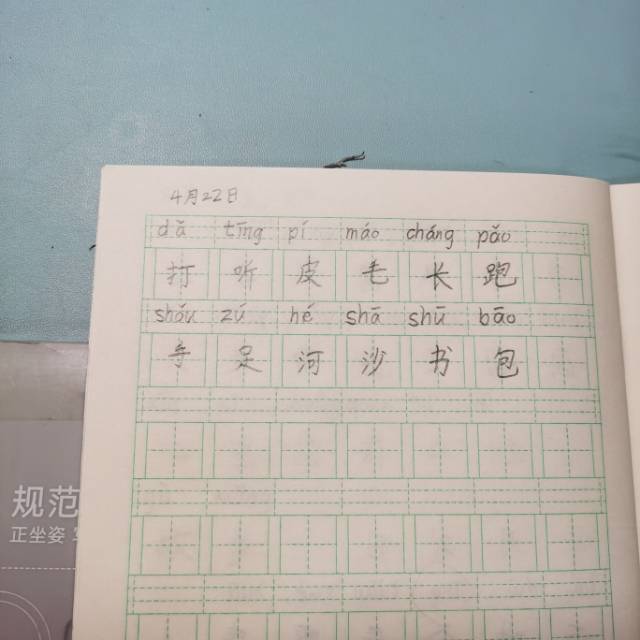 4月22日
dǎ tīng pí máo cháng pǎo
打 听 皮 毛 长 跑
shǒu zú hé shā shū bāo
手 足 河 沙 书 包
规范
正坐姿